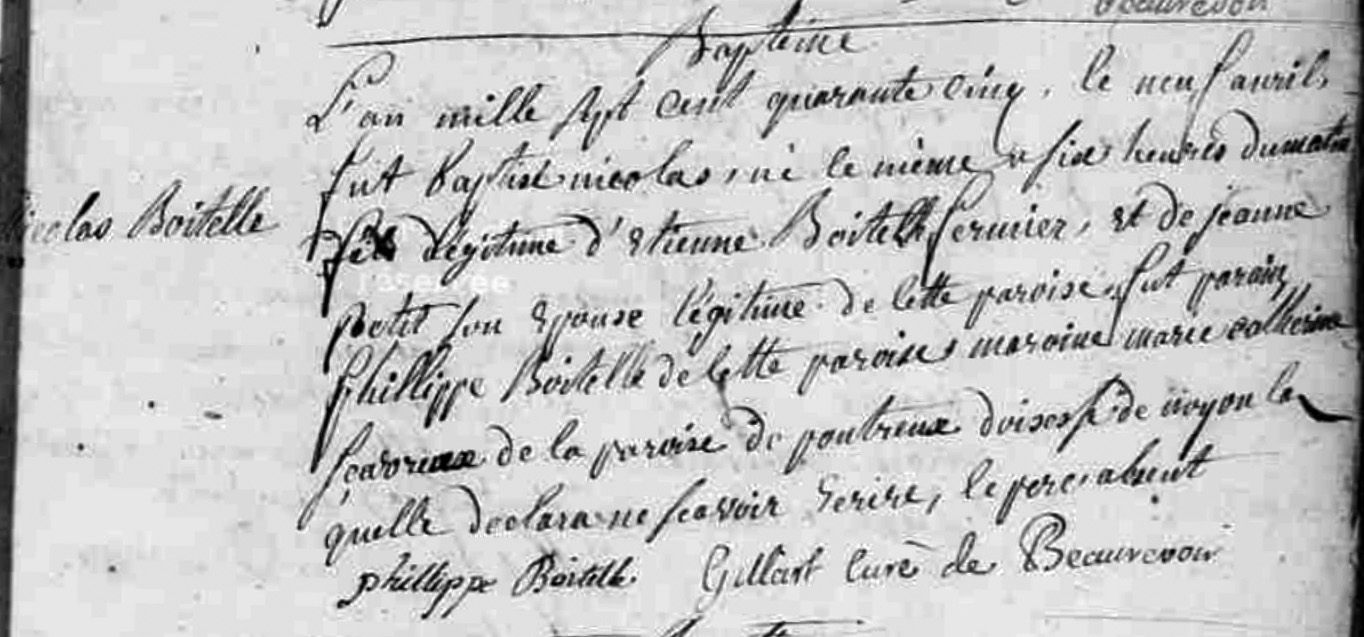 Beaurevoir
Baptême
L'an mille sept cent quarante cinq, le neuf avril,
fut baptisé nicolas, né le même a six heures du matin
fils légitime d'etienne Boitelle fermier, et de jeanne
petit son epouse légitime de cette paroise, fut parain
phillippe Boitelle de cette paroise, maraine marie catherine
de la paroise de pontreux doisese de noyon la
quelle declara ne scavoir ecrire, le pere absent
phillippe Boitelle Gillart curé de Beaurevoir
Nicolas Boitelle